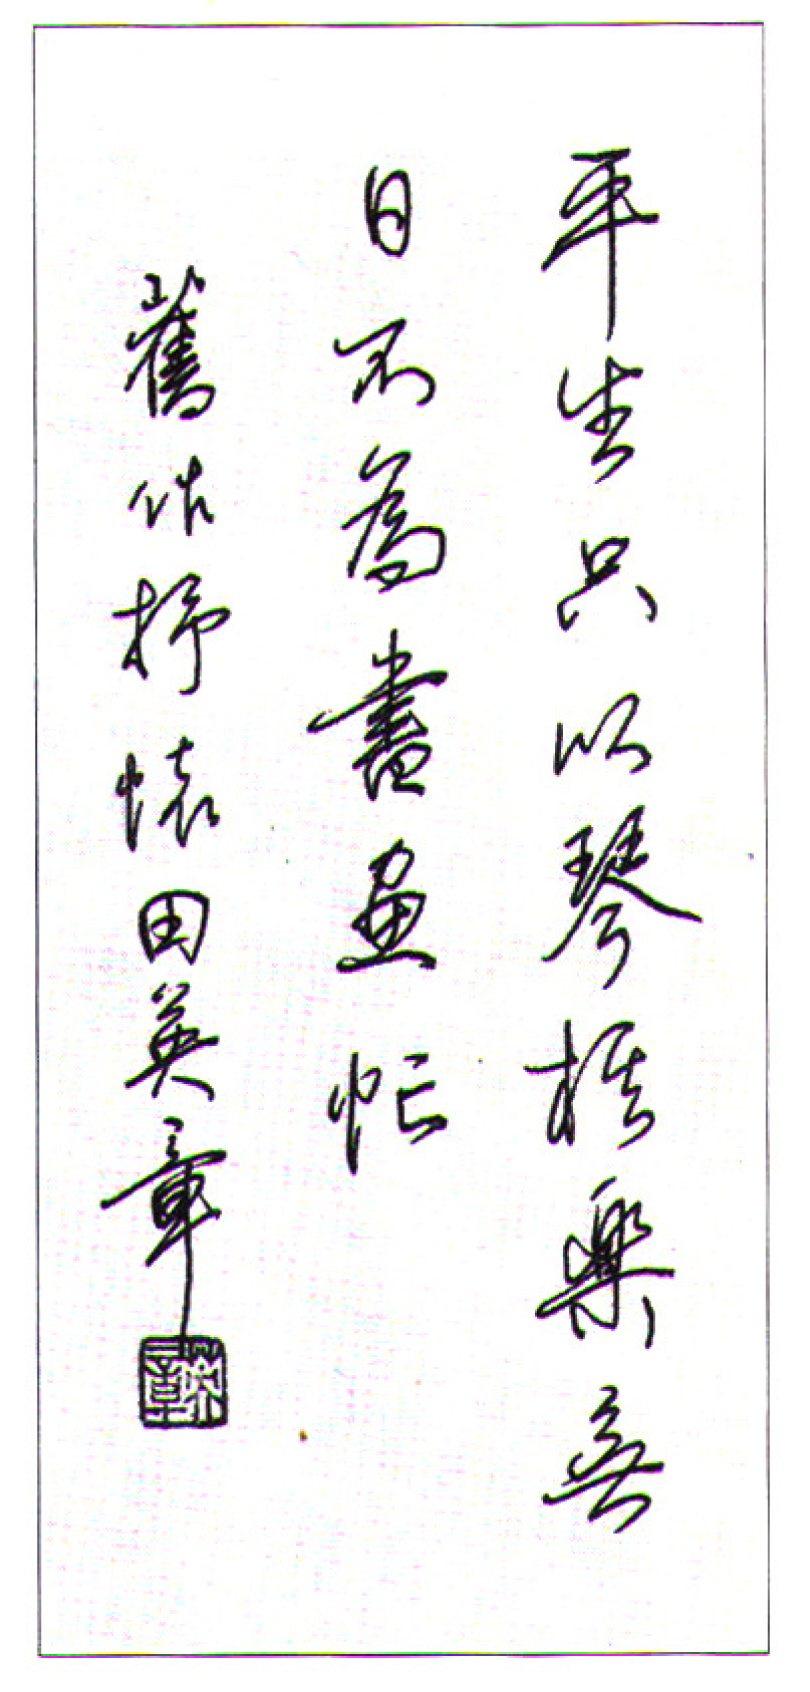 平生只以琴棋樂無
日不為書畫忙
舊作抒懷田英章